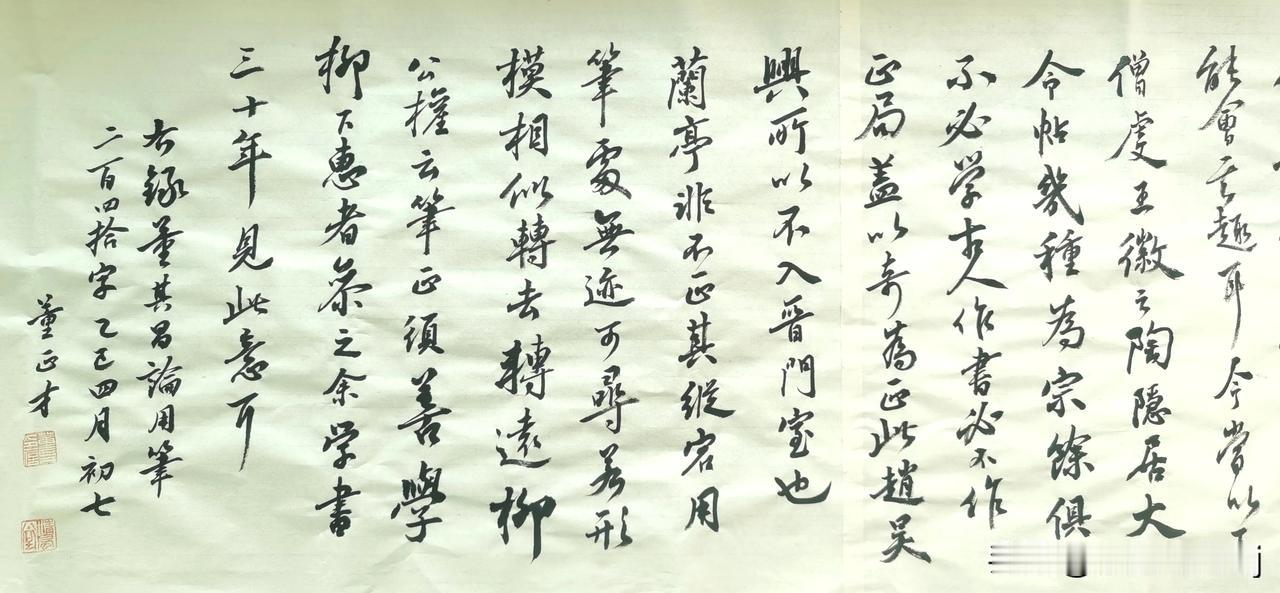 能會其趣耳今當以王
僧虔王徽之陶隱居大
令帖幾種為宗餘俱
不必學古人作書必不作
正局蓋以奇為正此趙吳
興所以不入晉門室也
蘭亭非不正其縱宕用
筆處無迹可尋若形
模相似轉去轉遠柳
公權云筆正須善學
柳下惠者參之余學書
三十年見此意耳
右錄董其昌論用筆
二百四拾字乙巳四月初七
董正才